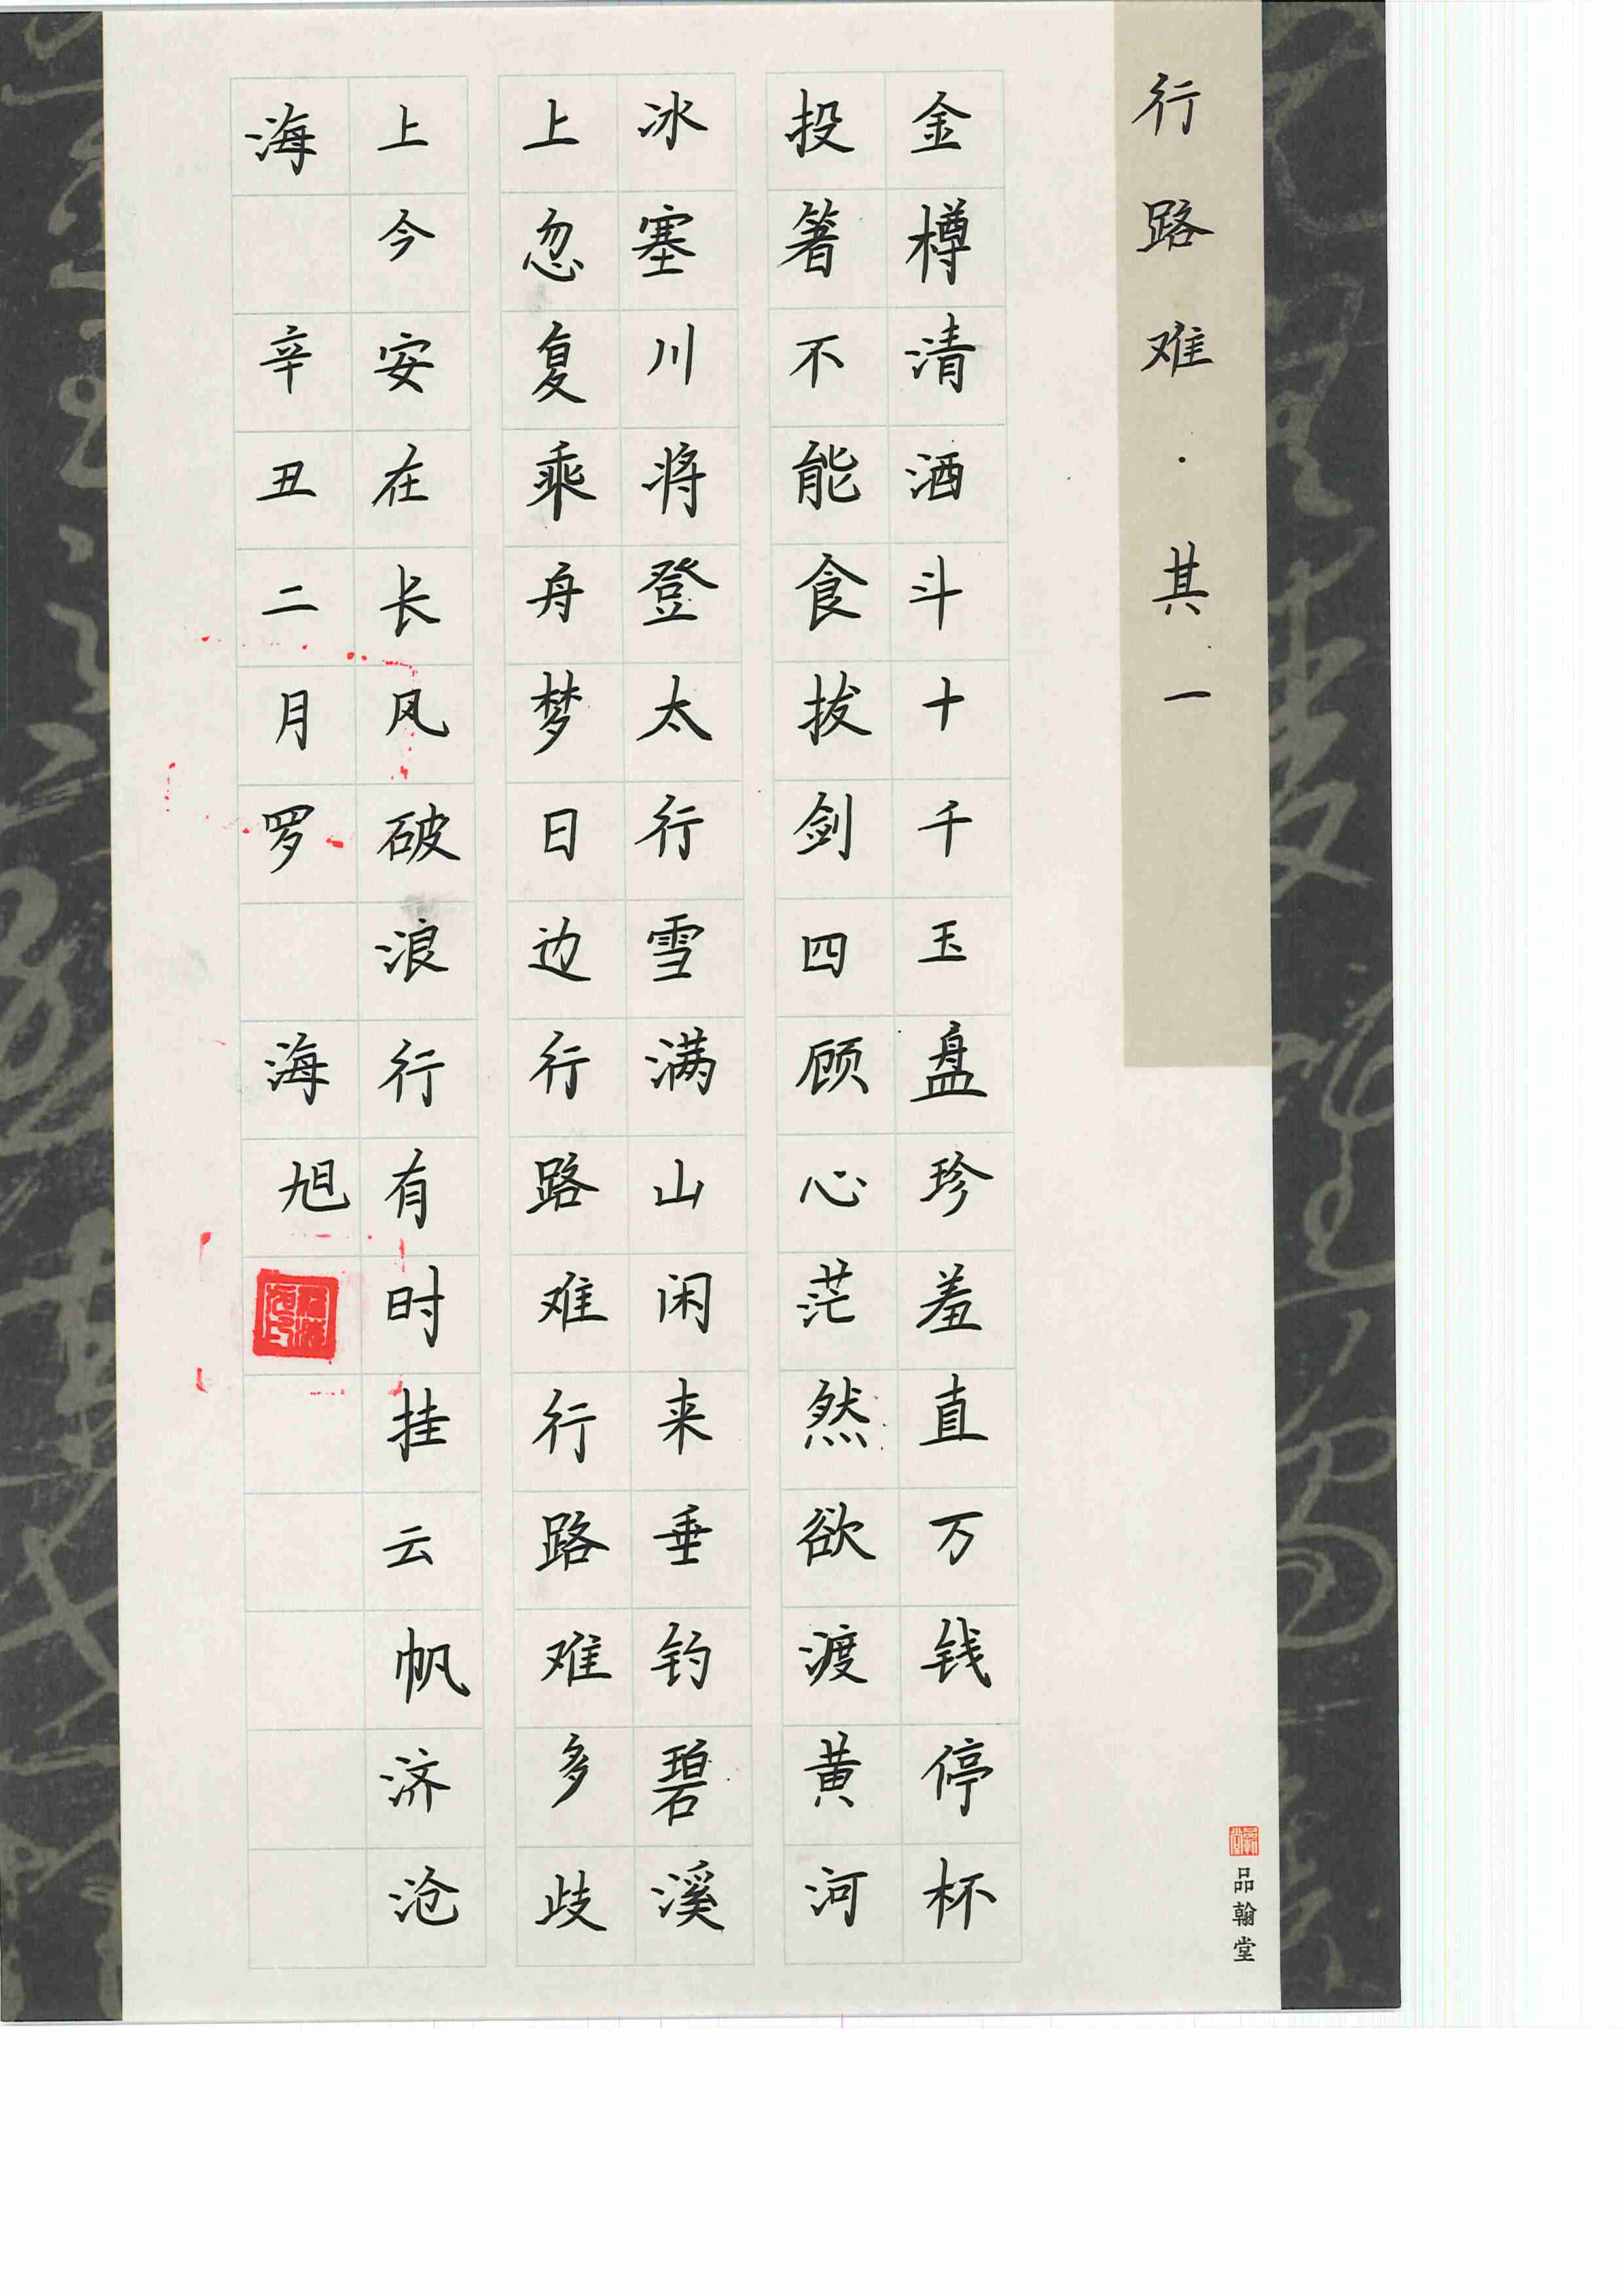 行路难·其一
金樽清酒斗十千玉盘珍羞直万钱停杯
投箸不能食拔剑四顾心茫然欲渡黄河
冰塞川将登太行雪满山闲来垂钓碧溪
上忽复乘舟梦日边行路难行路难多歧
上今安在长风破浪行有时挂云帆济沧
海 辛丑二月罗 海旭
品翰堂